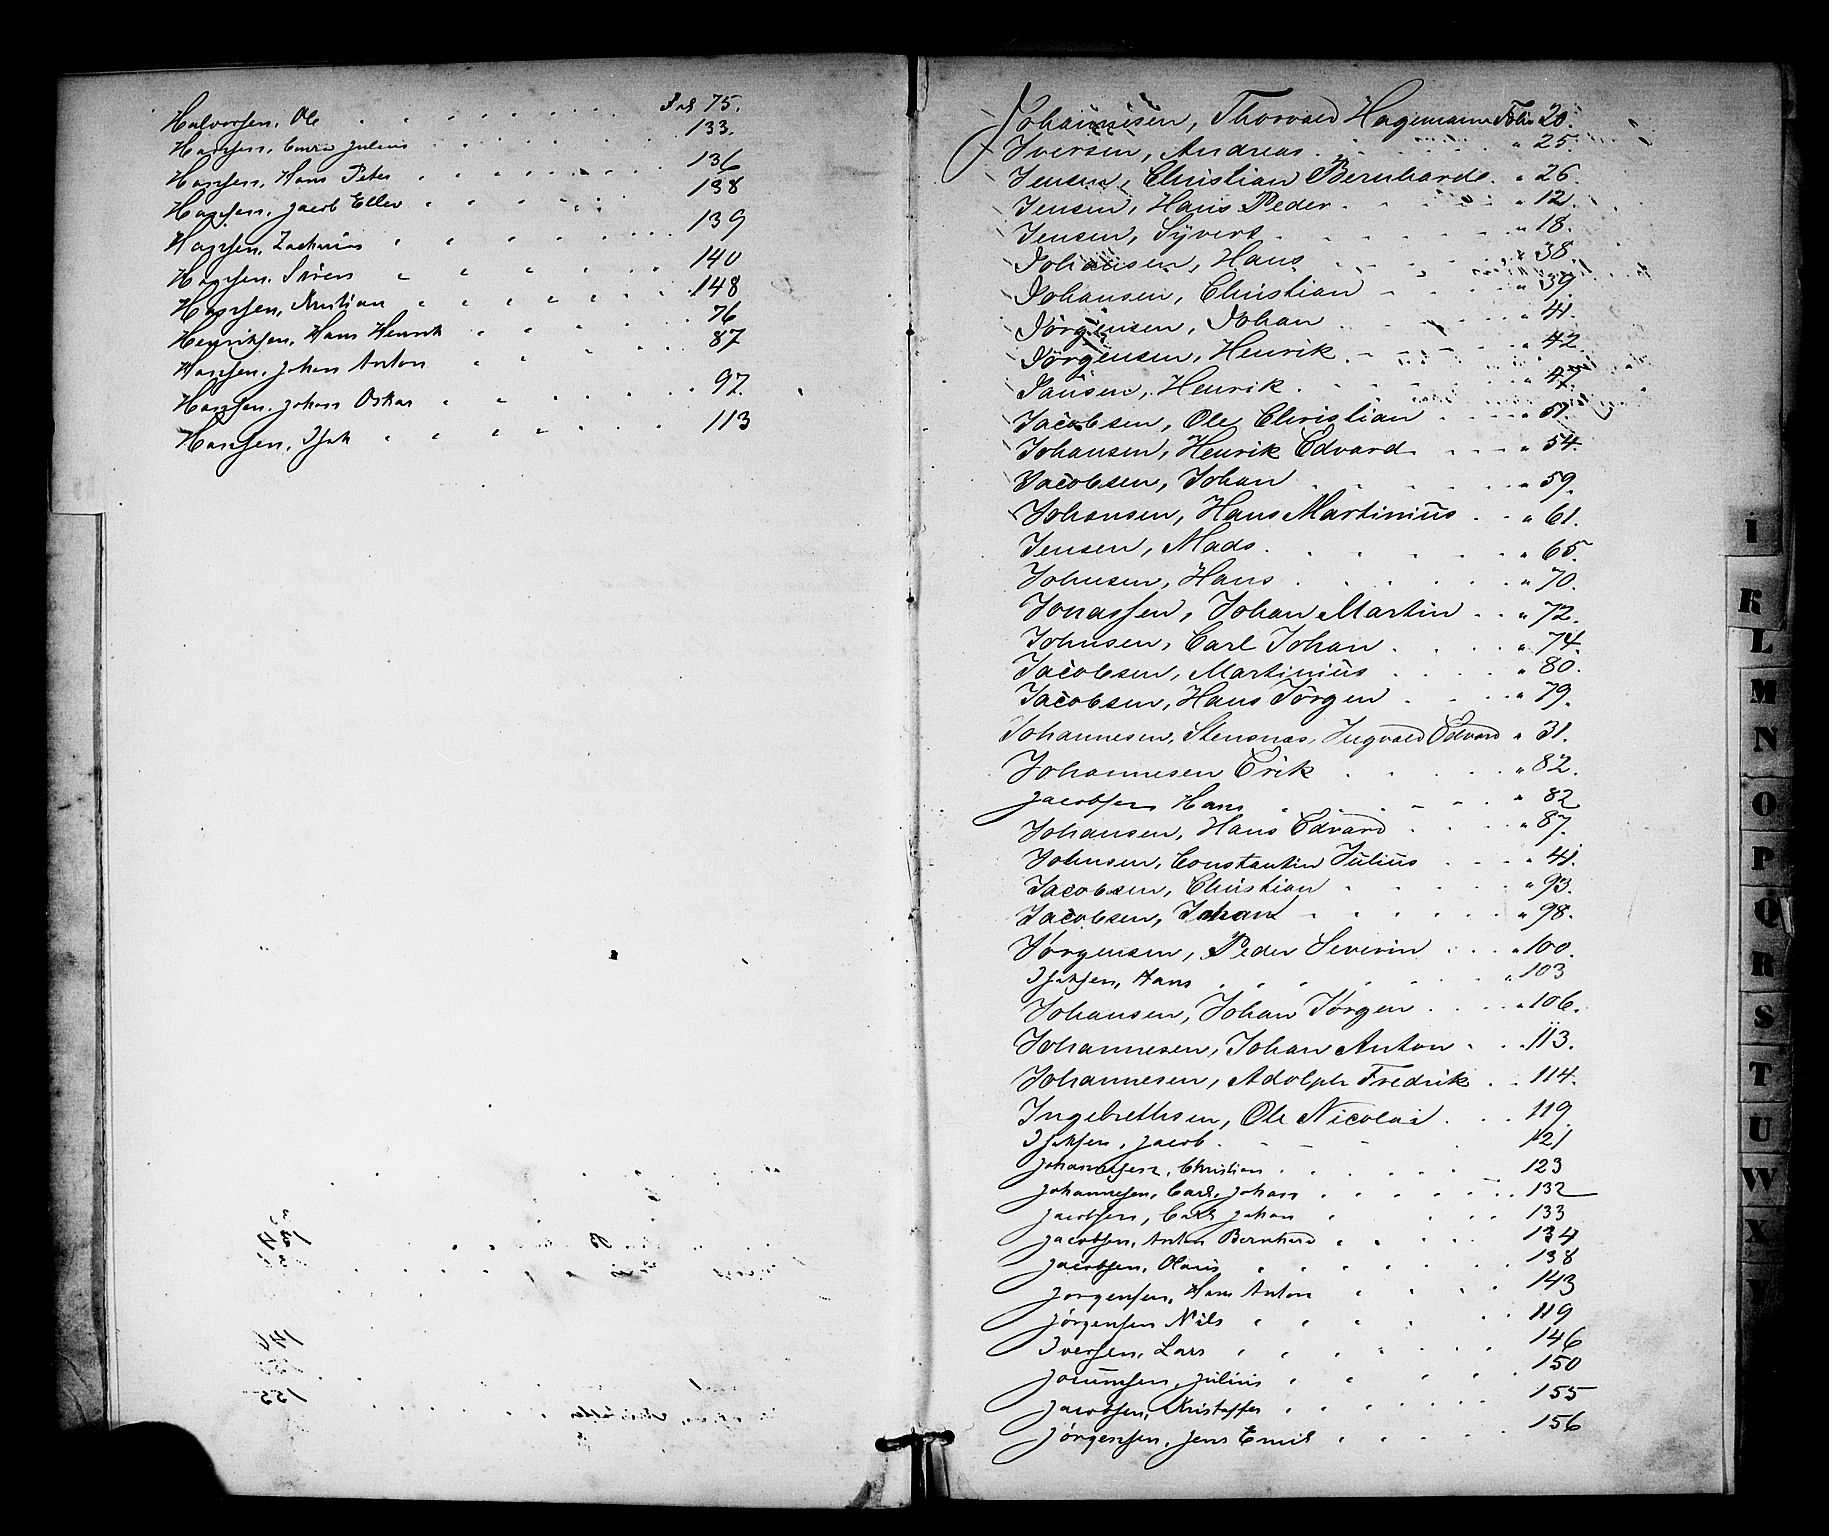 Halvorsen, Ole Fol 75.
Hansen, Julius 133.
Hansen, Hans Peter 136
Hansen, Jacob Eller 138
Hansen, Zacharias 139
Hansen, Sören 140
Hansen, Kristian 148
Henriksen, Hans Henrik 76
Hansen, Johan Anton 87
Hansen, Johan Oskar 97.
Hansen, Isak 113
Johannesen, Thorvald Hagemann Folio 20.
Iversen, Andreas. " 25.
Jensen, Christian Bernhard. " 26.
Jensen, Hans Peder. " 12.
Jensen, Syvert. " 18.
Johansen, Hans " 38.
Johansen, Christian " 39.
Jörgensen, Johan " 41.
Jörgensen, Henrik. " 42
Jansen, Henrik. " 47.
Jacobsen, Ole Christian " 51.
Johansen, Henrik Edvard " 54.
Jacobsen, Johan " 59.
Johansen, Hans Martinius " 61.
Jensen, Mads. " 65.
Johnsen, Hans " 70.
Jonassen, Johan Martin " 72.
Johnsen, Carl Johan " 74.
Jacobsen, Martinius " 80.
Jacobsen, Hans Jörgen " 79.
Johannesen, Stensnæs, Ingvald Edvard " 31.
Johannesen Erik " 82.
Jacobsen Hans " 82
Johansen, Hans Edvard " 87.
Johnsen, Constantin Julius " 41.
Jacobsen, Christian " 93.
Jacobsen, Johan " 98.
Jörgensen, Peder Severin " 100.
Isaksen, Hans " 103
Johansen, Johan Jörgen " 106.
Johannesen, Johan Anton " 113.
Johannesen, Adolph Fredrik " 114.
Ingebrethsen, Ole Nicolai 119.
Isaksen, Jacob. 121
Johannesen, Christian 123
Johannesen, Carl Johan 132
Jacobsen, Carl Johan 133
Jacobsen, Anton Bernhard 134
Jacobsen, Olaus 138
Jörgensen, Hans Anton 143
Jørgensen Nils 119
Iversen, Lars 146
Julius 150
Jacobsen, Kristoffer 155
Jørgensen, Jens Emil 156
I
K
L
M
N
O
P
Q
R
S
T
U
W
X
Y